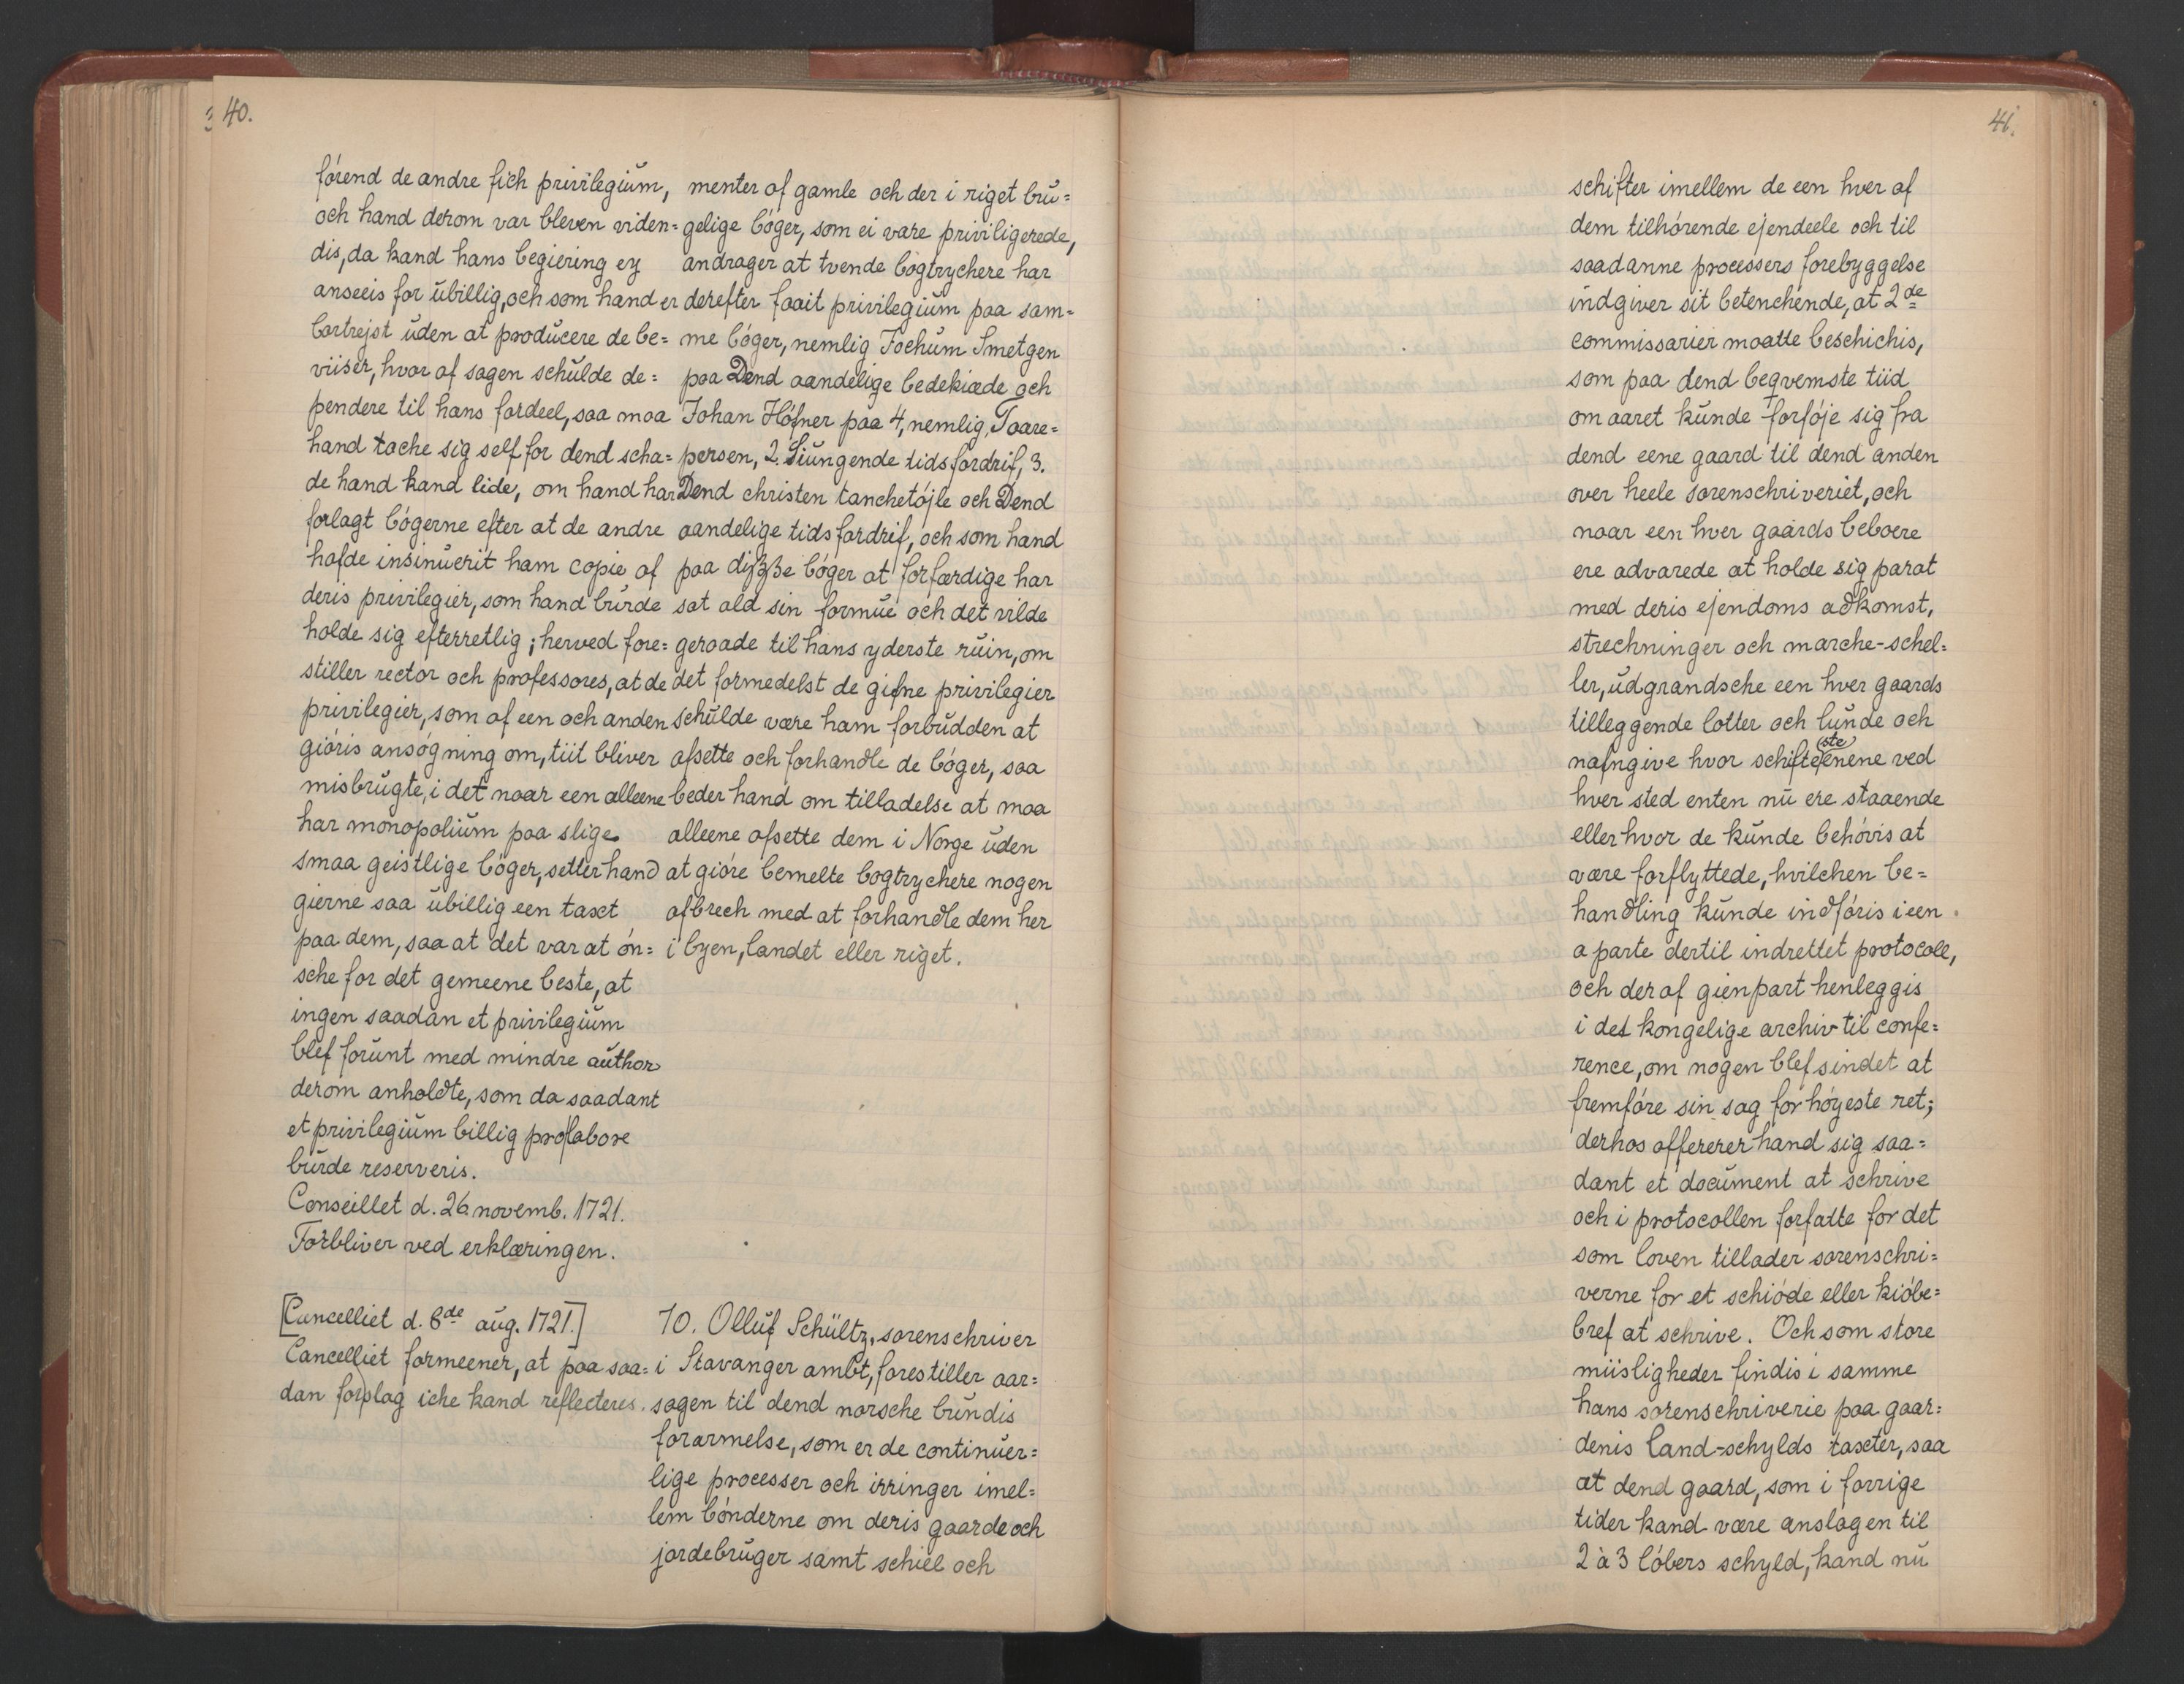 40.
førend de andre fich privilegium,
och hand derom var bleven viden=
dis, da kand hans begiering ey
anseeis for ubillig, och som hand er
bortrejst uden at producere de be=
viiser, hvor af sagen schulde de=
pendere til hans fordeel, saa maa
hand tache sig self for dend scha=
de hand kand lide, om hand har
forlagt bøgerne efter at de andre
hafde insinuerit ham copie af
deris privilegier, som hand burde
holde sig efterretlig; herved fore=
stiller rector och professores, at de
privilegier, som af een och anden
giøris ansøgning om, tiit bliver
misbrugte, i det naar een alleene
har monopolium paa slige
smaa geistlige bøger, setter hand
gierne saa ubillig een taxt
paa dem, saa at det var at øn=
sche for det gemeene beste, at
ingen saadan et privilegium
blef forunt med mindre author
derom anholdte, som da saadant
et privilegium billig pro labore
burde reserveris.
Conseillet d. 26 novemb. 1721.
Forbliver ved erklæringen.
[Cancelliet d. 8de aug. 1721.]
Cancelliet formeener, at paa saa=
dan forslag iche kand reflecteres.
menter af gamle och der i riget bru=
gelige bøger, som ei vare priviligerede,
andrager at tvende bogtrychere har
derefter faait privilegium paa sam=
me bøger, nemlig Jochum Smetgen
paa Dend aandelige bedekiæde och
Johan Høfner paa 4, nemlig, Taare=
persen, 2. Siungende tidsfordrif, 3.
Dend christen tanchetøjle och Dend
aandelige tidsfordrif, och som hand
paa dißße bøger at forfærdige har
sat ald sin formue och det vilde
geraade til hans yderste ruin, om
det formedelst de gifne privilegier
schulde være ham forbudden at
afsette och forhandle de bøger, saa
beder hand om tilladelse at maa
alleene afsette dem i Norge uden
at giøre bemelte bogtrychere nogen
afbrech med at forhandle dem her
i byen, landet eller riget.
10. Olluf Schültz, sorenschriver
i Stavanger ambt, forestiller aar=
sagen til dend norsche bundis
forarmelse, som er de continuer=
lige processer och irringer imel=
lem bønderne om deris gaarde och
jordebruger samt schiel och
41.
schifter imellem de een hver af
dem tilhørende ejendeele och til
saadanne processers forebyggelse
indgiver sit betenchende, at 2de
commissarier maatte beschichis,
som paa dend beqvemste tiid
om aaret kunde forføje sig fra
dend eene gaard til dend anden
over heele sorenschriveriet, och
naar een hver gaards beboere
ere advarede at holde sig parat
med deris ejendoms adkomst,
strechninger och marche-schel=
ler, udgrandsche een hver gaards
tilleggende lotter och lunde och
nafngive hvor schifte(ste)enene ved
hver sted enten nu ere staaende
eller hvor de kunde behøvis at
være forflyttede, hvilchen be=
handling kunde indføris i een
a parte dertil indrettet protocoll,
och deraf gienpart henleggis
i det kongelige archiv til confe=
rence, om nogen blef sindet at
fremføre sin sag for høyeste ret;
derhos offererer hand sig saa=
dant et document at schrive
och i protocollen forfatte for det
som loven tillader sorenschri=
verne for et schiøde eller kiøbe=
bref at schrive. Och som store
miisligheder findis i samme
hans sorenschriverie paa gaar=
denis land-schylds taxter, saa
at dend gaard, som i forrige
tider kand være anslagen til
2 à 3 løbers schyld, kand nu